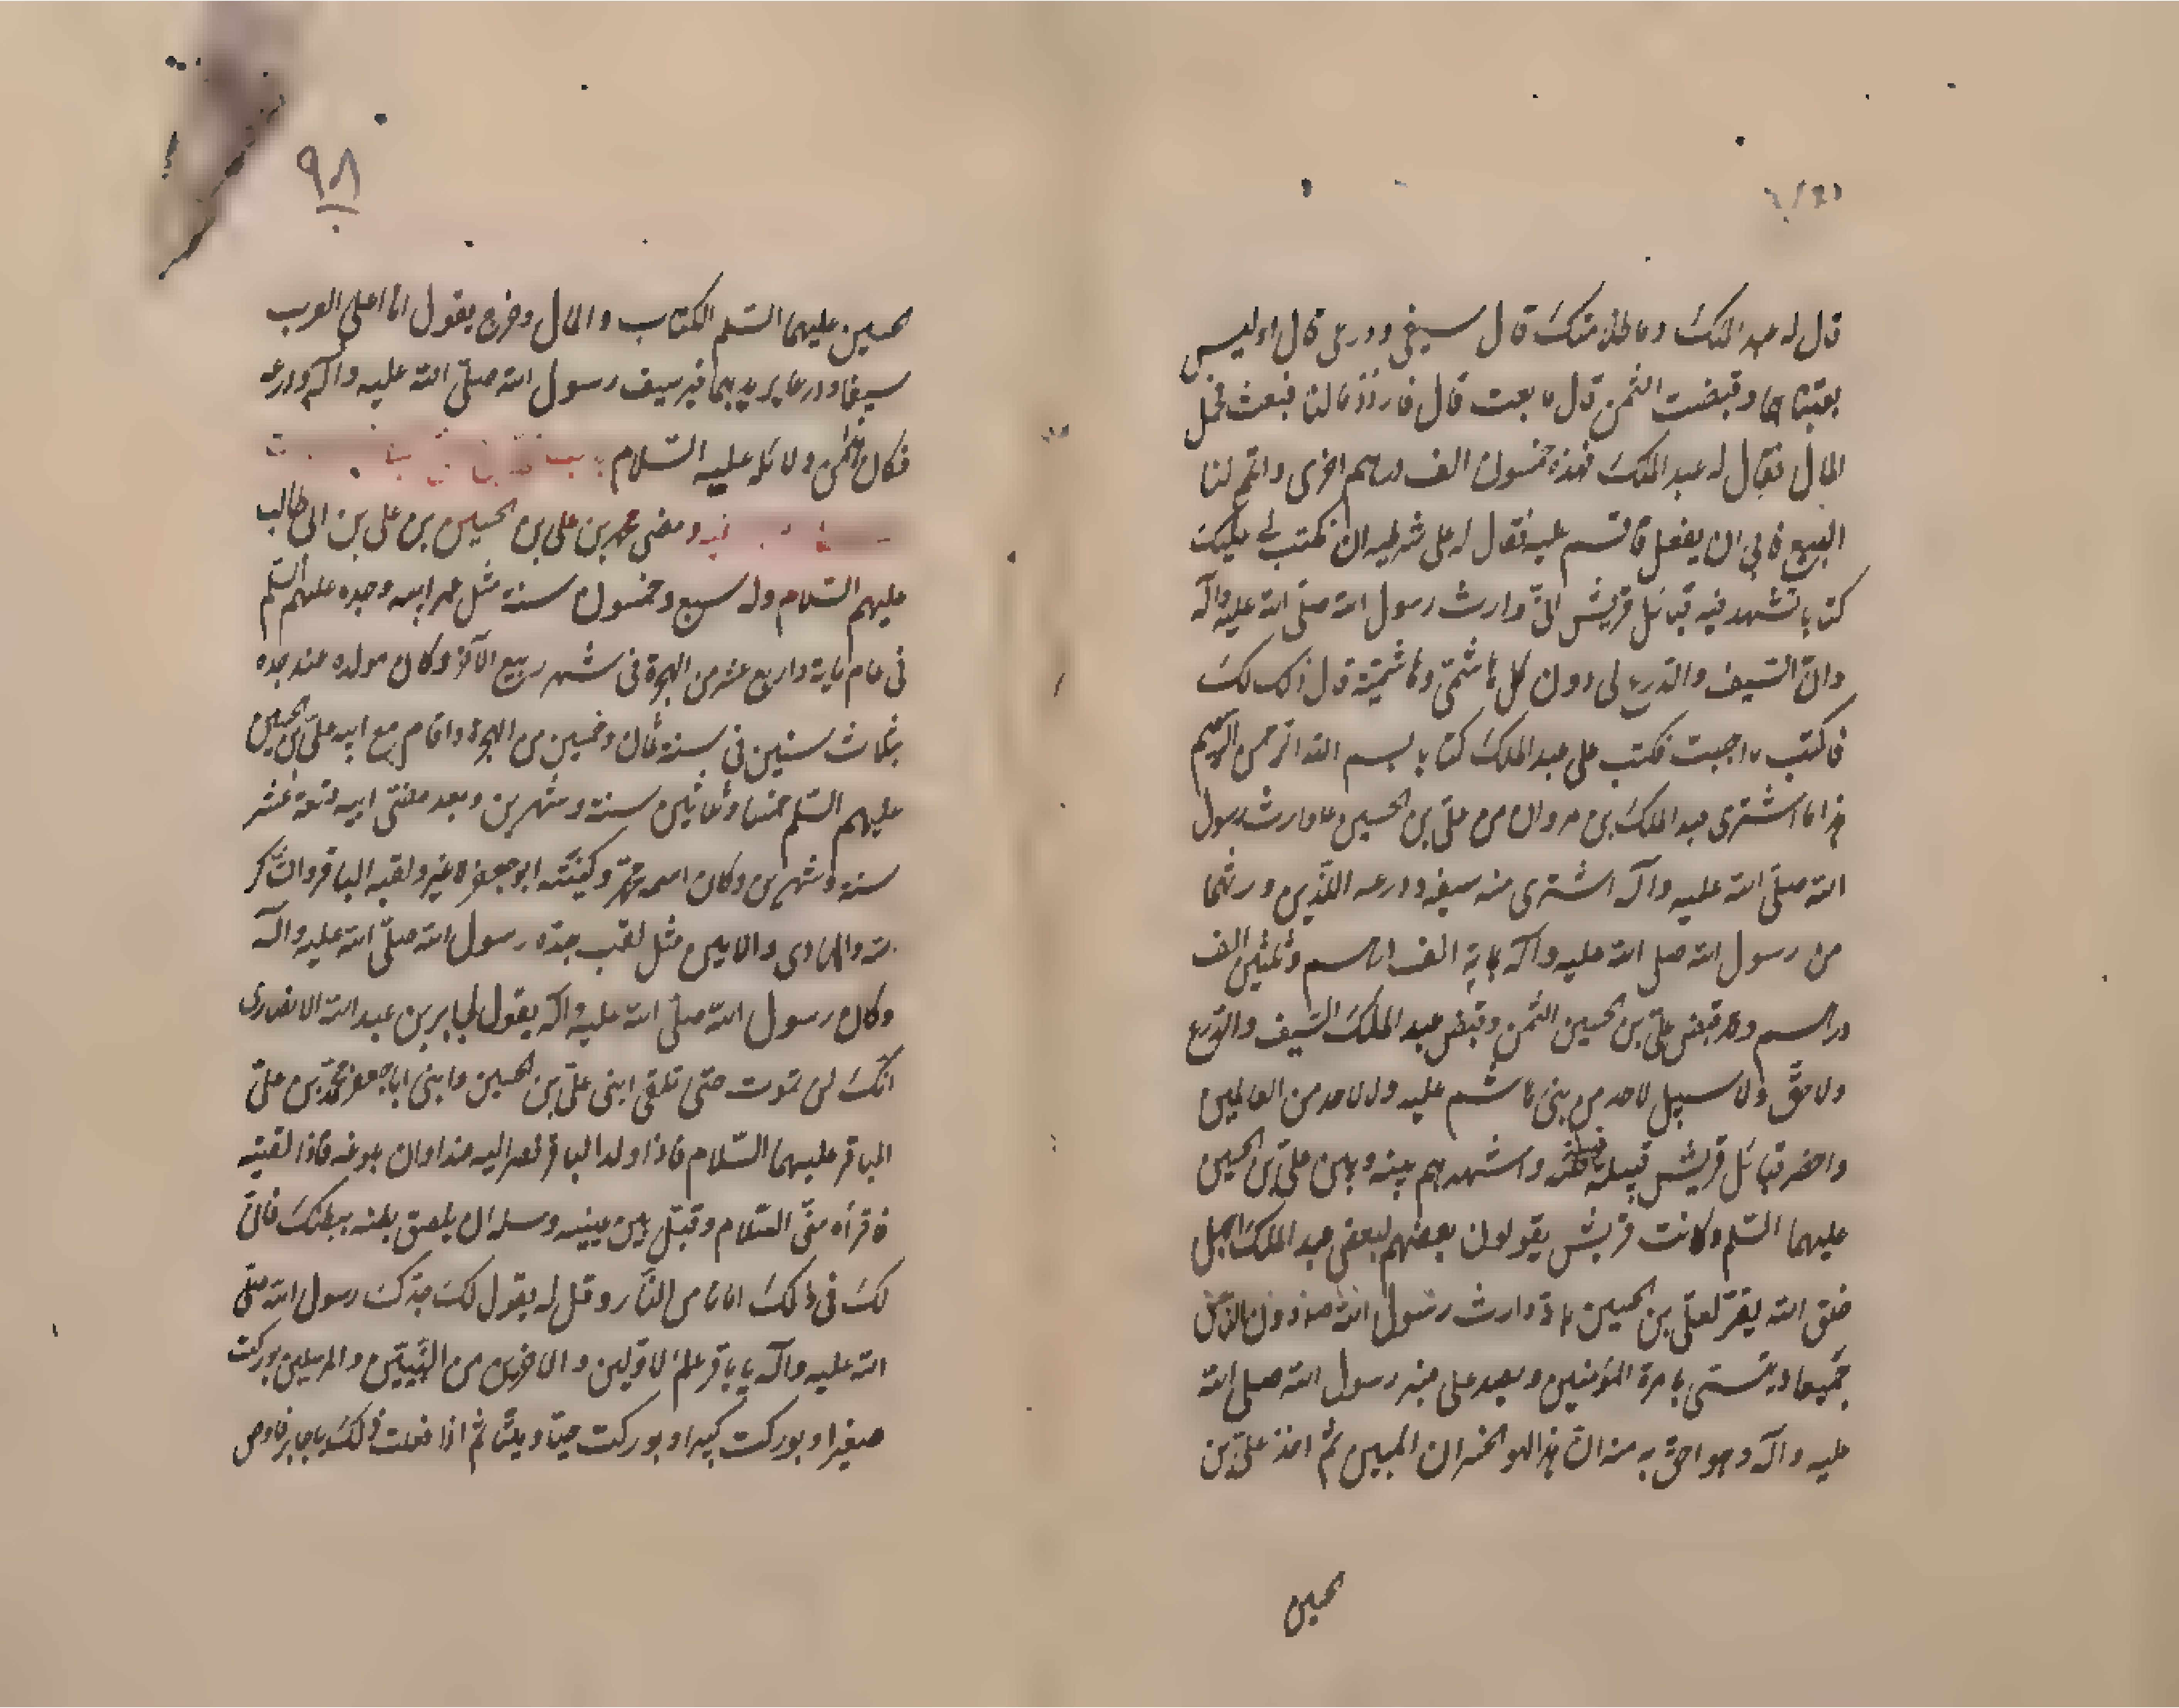 قال له عبد الملك وما ظلامتك قال سيفي ودرعي قال اوليس
بعتناهما وقبضت الثمن قال ما بعت قال فاردد مالنا فبعث فحمل
المال فقال له عبد الملك فهذه خمسون الف درهم اخرى واتم لنا
البيع فابى ان يفعل فاقسم عليه فقال له على شريطة ان تكتب لي عليك
كتابا تشهد فيه قبائل قريش انّي وارث رسول الله صلّى الله عليه وآله
وانّ السّيف والدّرع لي دون كل هاشمّي وهاشميّة قال ذلك لك
فاكتب ما احببت فكتب على عبد الملك كتابا بسم الله الرّحمن الرّحيم
هذا ما اشترى عبد الملك بن مروان من علّي بن الحسين وارث رسول
الله صلّى الله عليه وآله اشترى منه سيفه ودرعه اللّذين ورثهما
من رسول الله صلى الله عليه وآله بماية الف درهم وثمنين الف
درهم وقد قبض علّي بن الحسين الثّمن وقبض عبد الملك السّيف والدّرع
ولا حقّ ولا سبيل لاحد من بني هاشم عليه ولا لاحد من العالمين
واحضر قبائل قريش قبيلة قبيلة واشهدهم بينه وبين علّي بن الحسين
عليهما السّلم وكانت قريش يقولون بعضهم لبعض عبد الملك اجهل
خلق الله يقرّ لعلّي بن الحسين بانّه وارث رسول الله دون النّاس
جميعا ويتسمّى بامرة المؤمنين ويصعد على منبر رسول الله صلى الله
عليه وآله وهو احقّ به منه انّ هذا لهو الخسران المبين ثمّ اخذ علّي بن
الحسين
٩٨
الحسين عليهما السّلم الكتاب والمال وخرج يقول انا اعلى العرب
سيفا ودرعا يريد بهما غير سيف رسول الله صلّى الله عليه وآله ودرعه
فكان من ولائله عليه السّلام باب
ومضى محمّد بن علي بن الحسين بن علي بن ابي طالب
عليهم السّلام وله سبع وخمسون سنة مثل عمر ابيه وجدّه عليهم السّلم
في عام ماية واربع عشر من الهجرة في شهر ربيع الآخر وكان مولده عند جده
بثلاث سنين في سنة ثمان وخمسين من الهجرة واقام مع ابيه علّي بن الحسين
عليهم السّلم خمسا وثلاثين سنة وشهرين وبعد مضّي ابيه تسعة عشر
سنة وشهرين وكان اسمه محمّد وكنيّته ابو جعفر لا غير ولقبه الباقر والشّاكر
لله والهادي والامين مثل لقب جدّه رسول الله صلّى الله عليه وآله
وكان رسول الله صلّى الله عليه وآله يقول لجابر بن عبد الله الانصارى
انّك لن تموت حتى تلقى ابني علّي بن الحسين وابني ابا جعفر محمّد بن علّي
الباقر عليهما السّلام فاذا ولد الباقر فصر اليه عند اوان بلوغه فاذا لقيته
فاقرأه منّي السّلام وقبّل بين عينيه وسله ان يلصق بطنه ببطنك فانّ
لك في ذلك امانا من النّار وقل له يقول لك جدّك رسول الله صلّى
الله عليه وآله يا باقر علم الاوّلين والاخرين من النّبيّين والمرسلين بوركت
صغيرا وبوركت كبيرا وبوركت حيّا وميّتا ثم اذا فعلت ذلك يا جابر فاوص